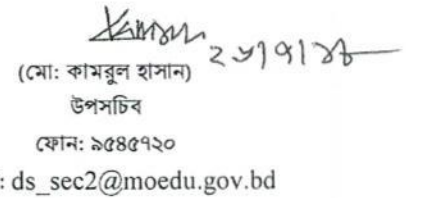 (মো: কামরুল হাসান)
উপসচিব
ফোন: ৯৫৪৫৭২০
: ds_sec2@moedu.gov.bd